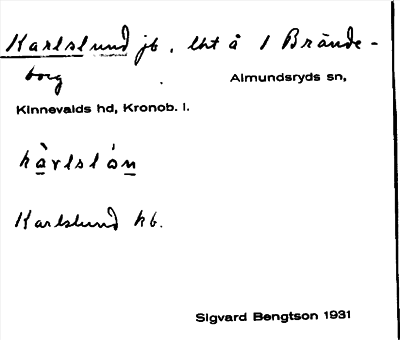 Karlslund jb, lht å 1 Brände-
borg Almundsryds sn,
Kinnevalds hd, Kronob. l.
hà̱rlslóṉ
Karlslund hb.
Sigvard Bengtson 1931